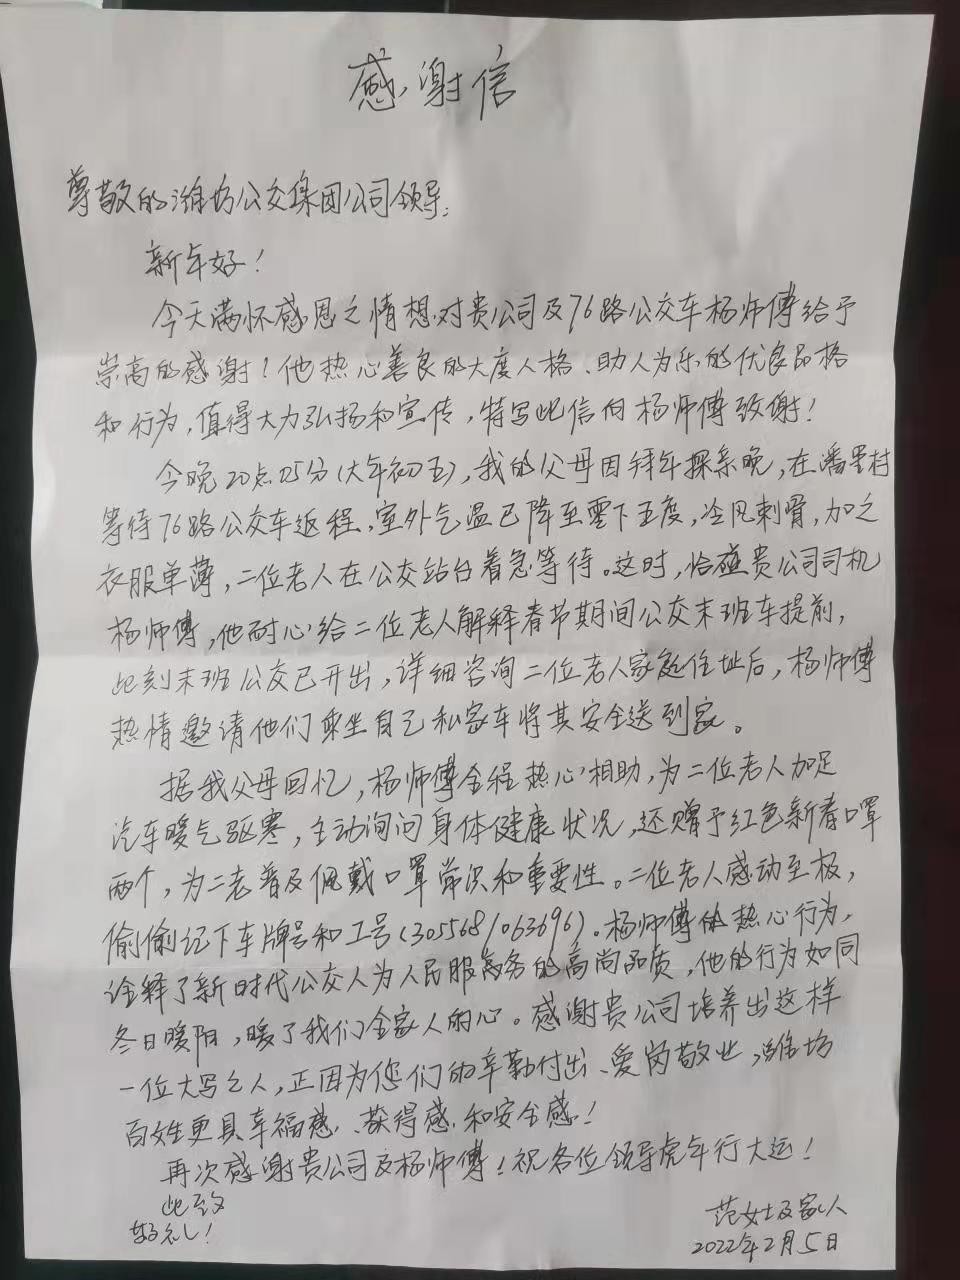 感谢信
尊敬的潍坊公交集团公司领导：
新年好！
今天满怀感恩之情想对贵公司及76路公交车杨师傅给予
崇高的感谢！他热心善良的大度人格、助人为乐的优良品格
和行为，值得大力弘扬和宣传，特写此信向杨师傅致谢！
今晚20点25分（大年初五），我的父母因拜年探亲晚，在潘里村
等待76路公交车返程，室外气温已降至零下五度，冷风刺骨，加之
衣服单薄，二位老人在公交站台着急等待。这时，恰碰贵公司司机
杨师傅，他耐心给二位老人解释春节期间公交末班车提前，
此刻末班公交已开出，详细咨询二位老人家庭住址后，杨师傅
热情邀请他们乘坐自己私家车将其安全送到家。
据我父母回忆，杨师傅全程热心相助，为二位老人加足
汽车暖气驱寒，主动询问身体健康状况，还赠予红色新春口罩
两个，为二老普及佩戴口罩常识和重要性。二位老人感动至极，
偷偷记下车牌号和工号（305568/063696）。杨师傅的热心行为，
诠释了新时代公交人为人民服务的高尚品质，他的行为如同
冬日暖阳，暖了我们全家人的心。感谢贵公司培养出这样
一位大写之人，正因为您们的辛勤付出、爱岗敬业，潍坊
百姓更具幸福感、获得感和安全感！
再次感谢贵公司及杨师傅！祝各位领导虎年行大运！
此致
敬礼！
范女士及家人
2022年2月5日